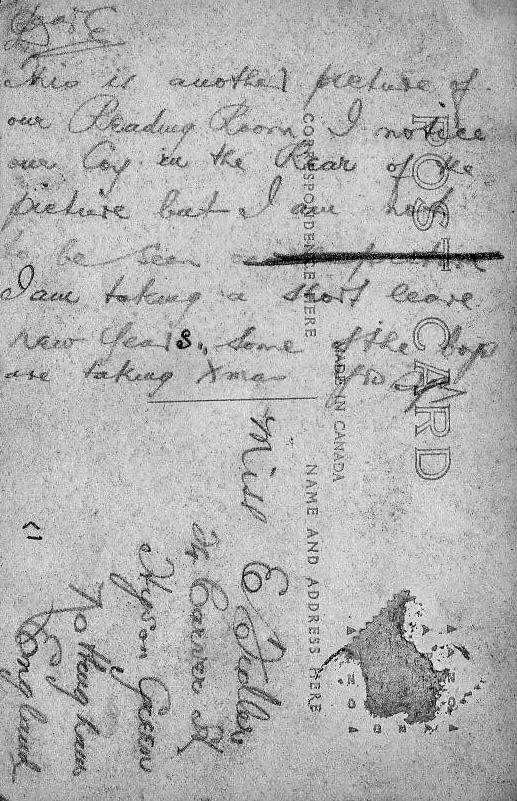 Dear E
This is another picture of
our Reading Room I notice
our Coy in the Rear of the
picture but I am not
to be seen
I am taking a short leave
new Years. Some of the boys
are taking Xmas
POST CARD
CORRESPONDENCE HERE
MADE IN CANADA
NAME AND ADDRESS HERE
Miss E Fuller
Carver St
Hyson Green
Nottingham
England